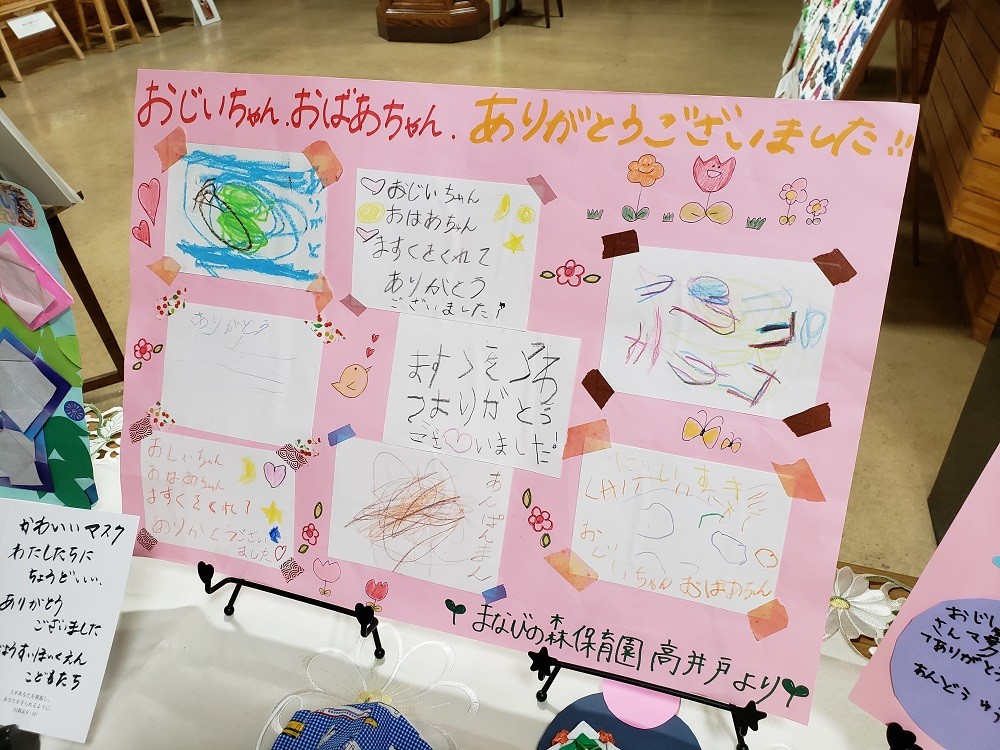 おじいちゃん.おばあちゃん.ありがとうございました!!
おじいちゃん
おはあちゃん
ますくをくれて
ありがとう
ございました!
ありがとう
つありがとう
ございました!
おじいちゃん
おはあちゃん
ますくをくれて
ありがとうござい
ました
あんぱんまん
おじいちゃん おばあちゃん
まなびの森保育園 高井戸より
かわいいマスク
わたしたちに
ちょうどいい。
ありがとう
ございました
こどもたち
主があなたを祝福し、
あなたを守られるように。
おじい
さんて
てありがと
あんどう ゆ